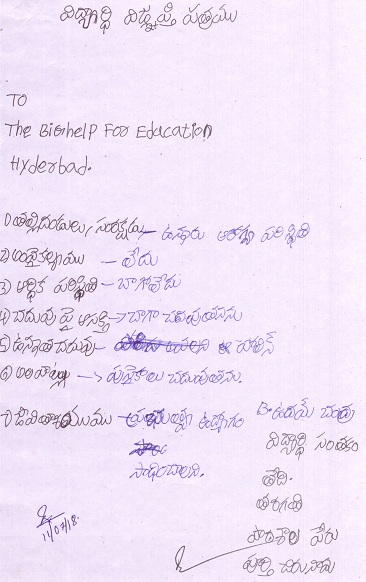 విద్యార్థి విజ్ఞప్తి పత్రము
TO
The Bighelp For Education
Hyderbad.
1) తల్లిదండ్రులు, సంరక్షకులు - ఉన్నారు ఆరోగ్య పరిస్థితి
2) అంగవైకల్యము - లేదు
3) ఆర్థిక పరిస్థితి - బాగాలేదు
4) చదువు పై ఆసక్తి -> బాగా చదువుతాను
5) ఉన్నత చదువు -
6) అలవాట్లు -> పుస్తకాలు చదువుతను.
7) జీవితాశయము - ప్రభుత్వ ఉద్యోగం
సాధించాలని.
B. ఉదయ్ చంద్ర
విద్యార్థి సంతకం
తేది.
తరగతి
పాఠశాల పేరు
పూర్తి చిరునామా
11/07/18.